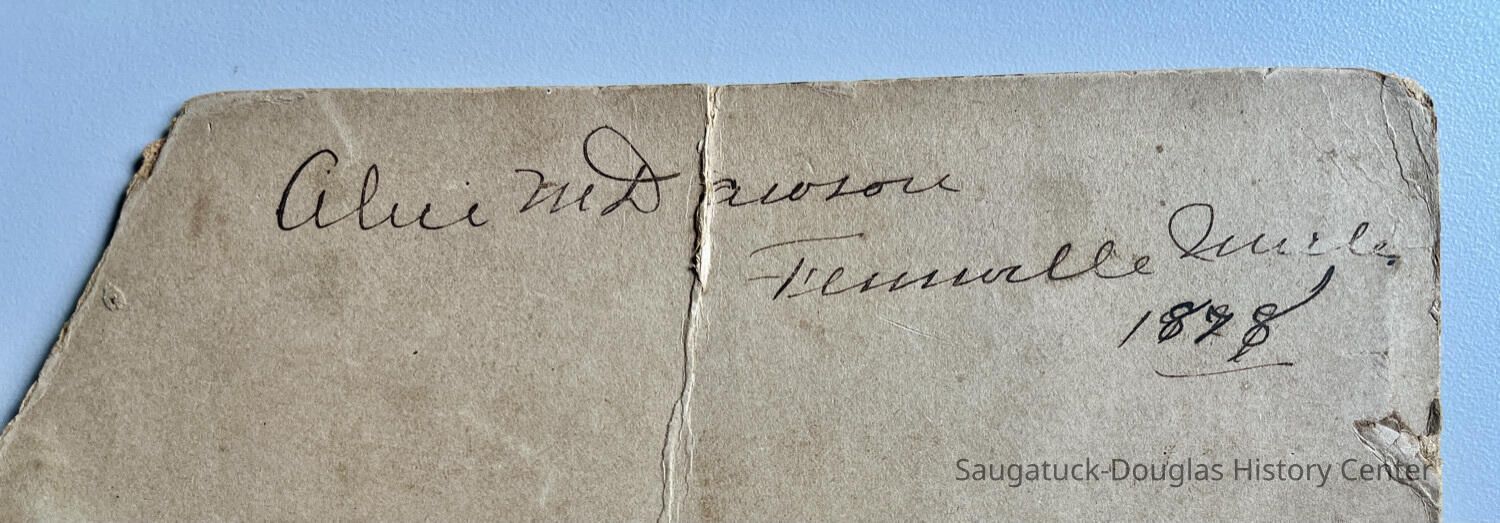 Alice M Dawson
Fennville Mich.
1878
Saugatuck-Douglas History Center